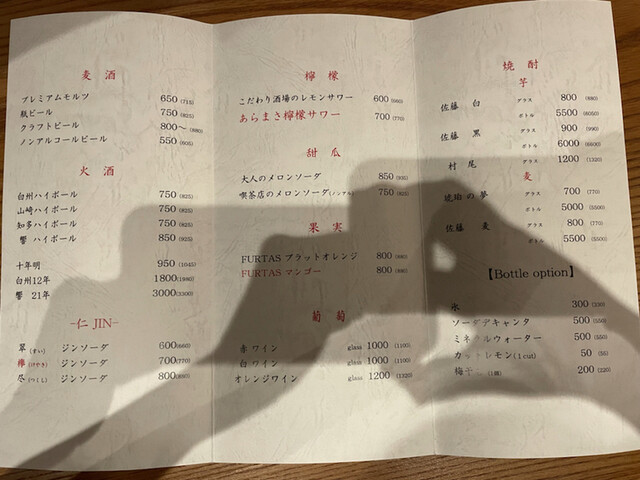 麦酒
プレミアムモルツ 650 (715)
瓶ビール 750 (825)
クラフトビール 800～ (880)
ノンアルコールビール 550 (605)
火酒
白州ハイボール 750 (825)
山崎ハイボール 750 (825)
知多ハイボール 750 (825)
響 ハイボール 850 (935)
十年明 950 (1045)
白州12年 1800 (1980)
響 21年 3000 (3300)
-仁 JIN-
翠 (すい) ジンソーダ 600 (660)
欅 (けやき) ジンソーダ 700 (770)
尽 (つくし) ジンソーダ 800 (880)
檸檬
こだわり酒場のレモンサワー 600 (660)
あらまさ檸檬サワー 700 (770)
甜瓜
大人のメロンソーダ 850 (935)
喫茶店のメロンソーダ (ノンアル) 750 (825)
果実
FURTAS ブラットオレンジ 800 (880)
FURTAS マンゴー 800 (880)
葡萄
赤ワイン glass 1000 (1100)
白ワイン glass 1000 (1100)
オレンジワイン glass 1200 (1320)
焼酎
芋
佐藤 白 グラス 800 (880)
ボトル 5500 (6050)
佐藤 黒 グラス 900 (990)
ボトル 6000 (6600)
村尾 グラス 1200 (1320)
麦
琥珀の夢 グラス 700 (770)
ボトル 5000 (5500)
佐藤 麦 グラス 800 (770)
ボトル 5500 (5500)
【Bottle option】
氷 300 (330)
ソーダデキャンタ 500 (550)
ミネラルウォーター 500 (550)
カットレモン (1cut) 50 (55)
梅干 (1個) 200 (220)